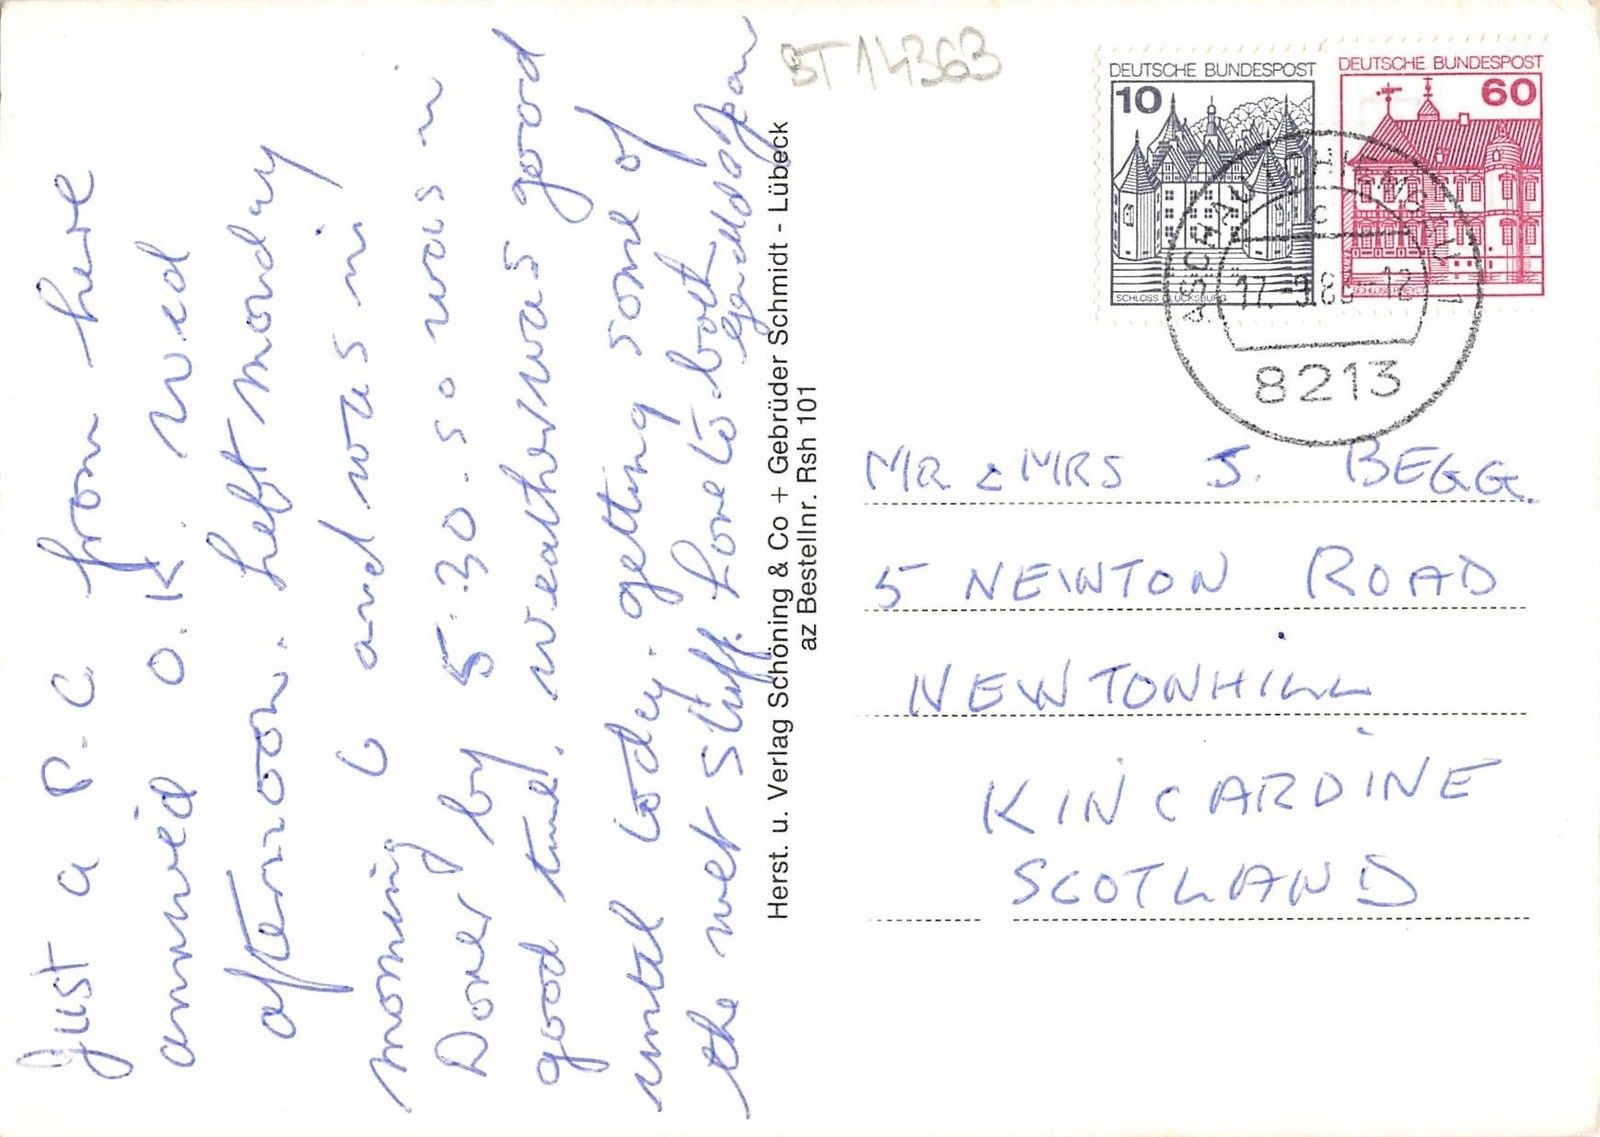 Just a P.C from here
arrived O.K. wed
afternoon. Left monday
morning 6 and was in
Dover by 5.30. so was in
good time. weather was good
until today. getting some of
the wet stuff. Love to both
Jean
BT14363
Herst. u. Verlag Schöning & Co + Gebrüder Schmidt - Lübeck
az Bestellnr. Rsh 101
DEUTSCHE BUNDESPOST
10
SCHLOSS GLÜCKSBURG
DEUTSCHE BUNDESPOST
60
ASCHAU I. CHIEMGAU 1
c
-12
8213
MR & MRS J. BEGG.
5 NEWTON ROAD
NEWTONHILL
KINCARDINE
SCOTLAND